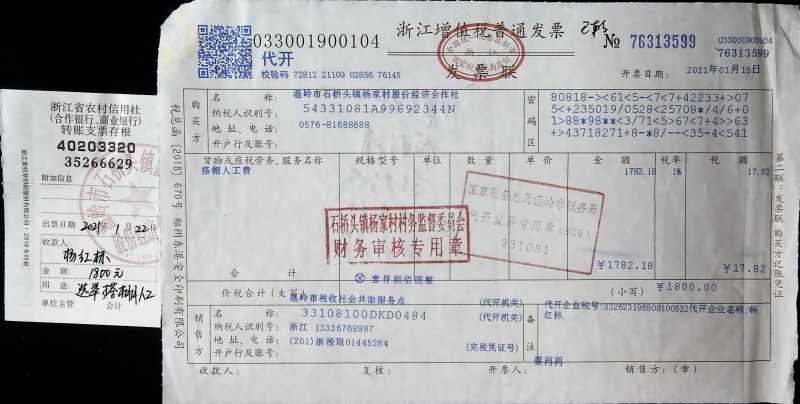 浙江省农村信用社
(合作银行、商业银行)
转账支票存根
40203320
35266629
附加信息
出票日期 2021 1 22日
收款人:
杨红标
金额: 1800元
用途: 选举搭棚人工
单位主管 会计
033001900104
代开
校验码 72812 21109 02856 76145
浙江增值税普通发票
发票联
№ 76313599
033001900104
76313599
开票日期: 2021年01月15日
税总函〔2018〕670号 郑州东港安全印刷有限公司
购买方
名称: 温岭市石桥头镇杨家村股份经济合作社
纳税人识别号: 54331081A99692344N
地址、电话: 0576-81688688
开户行及账号:
密码区
80818-><61<5-<7<+42233+>07
5<+235019/0528<25708*/4/6+0
1>88*98**<3/71<5>67<7+4>>63
+>43718271+8-*8/--<35-4<541
货物或应税劳务、服务名称 规格型号 单位 数量 单价 金额 税率 税额
搭棚人工费 1782.18 1% 17.82
石桥头镇杨家村村务监督委员会
财务审核专用章
国家税务总局温岭市税务局
代开发票专用章
331081
合计 ¥1782.18 ¥17.82
价税合计(大写) ⊗壹仟捌佰圆整 (小写) ¥1800.00
销售方
名称: 温岭市税收社会共治服务点 (代开机关)
纳税人识别号: 33108100DKD0484 (代开机关)
地址、电话: 浙江 13336768987
开户行及账号: (201)浙税现01445264 (完税凭证号)
备注
代开企业税号:332623196508100532代开企业名称:杨
红标.
蔡冉冉
收款人: 复核: 开票人: 销售方:(章)
第二联:发票联 购买方记账凭证